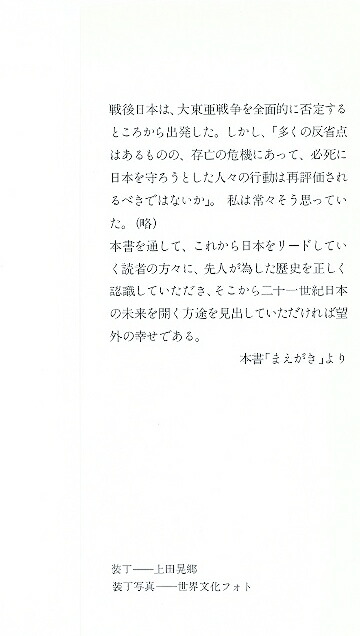 戦後日本は、大東亜戦争を全面的に否定する
ところから出発した。しかし、「多くの反省点
はあるものの、存亡の危機にあって、必死に
日本を守ろうとした人々の行動は再評価され
るべきではないか」。 私は常々そう思ってい
た。（略）
本書を通して、これから日本をリードしてい
く読者の方々に、先人が為した歴史を正しく
認識していただき、そこから二十一世紀日本
の未来を開く方途を見出していただければ望
外の幸せである。
本書「まえがき」より
装丁――上田晃郷
装丁写真――世界文化フォト